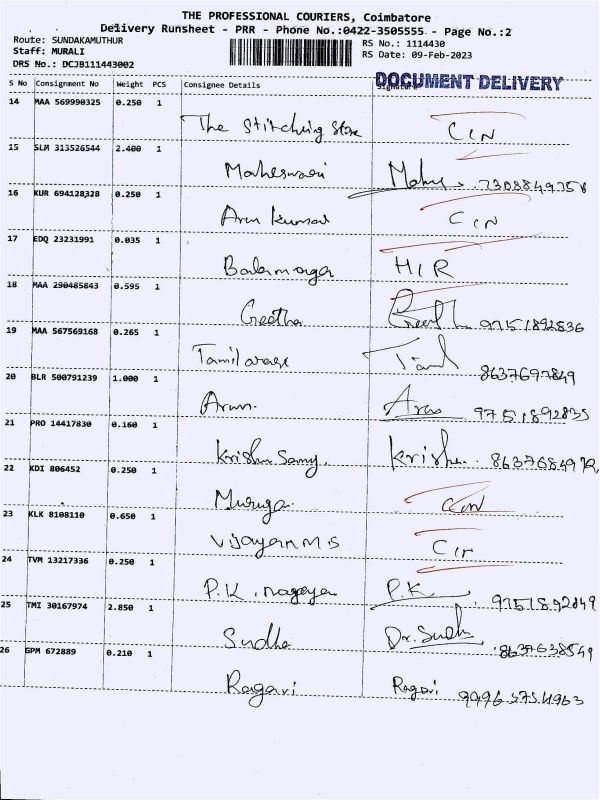 THE PROFESSIONAL COURIERS, Coimbatore
Delivery Runsheet - PRR - Phone No.:0422-3505555 - Page No.:2
Route: SUNDAKAMUTHUR
RS No.: 1114430
Staff: MURALI
RS Date: 09-Feb-2023
DRS No.: DCJB111443002
DOCUMENT DELIVERY
S No Consignment No Weight PCS Consignee Details Signature
14 MAA 569990325 0.250 1
The Stitching Store CIN
15 SLM 313526544 2.400 1
Maheswari
16 KUR 694128328 0.250 1
Arun kumar CIN
17 EDQ 23231991 0.035 1
HIR
18 MAA 290485843 0.595 1
Geetha 9751892836
19 MAA 567569168 0.265 1
Tamilarasi Tamil 8637697849
20 BLR 500791239 1.000 1
Arun. Arun 9751892835
21 PRO 14417830 0.160 1
Krishna Samy. Krishna
22 KDI 806452 0.250 1
Muruga CIN
23 KLK 8108110 0.650 1
Vijayan M S CIN
24 TVM 13217336 0.250 1
P.K. nagayan P.K 9751892849
25 TMI 30167974 2.850 1
Sudha Dr.Sudh 8637638549
26 GPM 672889 0.210 1
Ragavi Ragavi